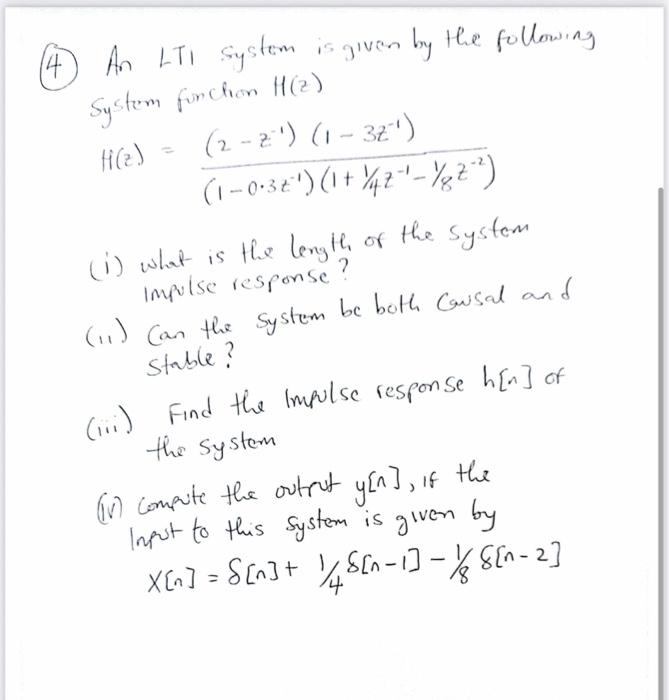 (4) An LTI system is given by the following
System function H(z)
H(z) = (2 - z⁻¹) (1 - 3z⁻¹)
(1 - 0.3z⁻¹) (1 + 1/4 z⁻¹ - 1/8 z⁻²)
(i) what is the length of the system
Impulse response?
(ii) Can the system be both Causal and
Stable?
(iii) Find the Impulse response h[n] of
the system
(iv) Compute the output y[n], if the
Input to this system is given by
X[n] = δ[n] + 1/4 δ[n-1] - 1/8 δ[n-2]